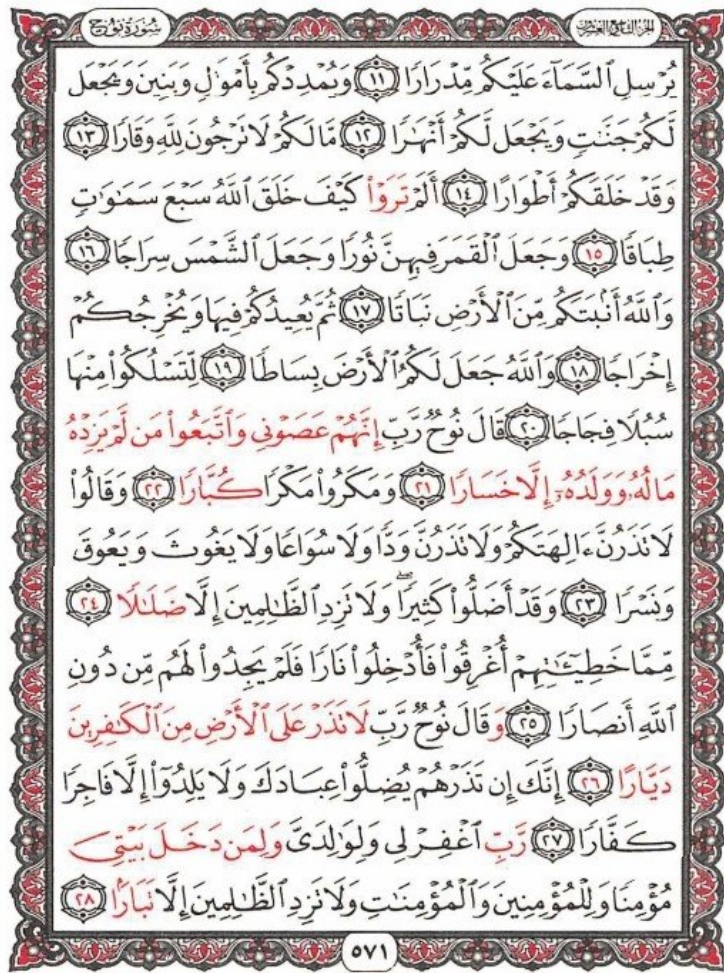 الجزء التاسع والعشرون
سُورَةُ نُوحٍ
يُرْسِلِ ٱلسَّمَآءَ عَلَيْكُم مِّدْرَارًا ١١ وَيُمْدِدْكُم بِأَمْوَٰلٍ وَبَنِينَ وَيَجْعَل
لَّكُمْ جَنَّٰتٍ وَيَجْعَل لَّكُمْ أَنْهَٰرًا ١٢ مَّا لَكُمْ لَا تَرْجُونَ لِلَّهِ وَقَارًا ١٣
وَقَدْ خَلَقَكُمْ أَطْوَارًا ١٤ أَلَمْ تَرَوْا۟ كَيْفَ خَلَقَ ٱللَّهُ سَبْعَ سَمَٰوَٰتٍ
طِبَاقًا ١٥ وَجَعَلَ ٱلْقَمَرَ فِيهِنَّ نُورًا وَجَعَلَ ٱلشَّمْسَ سِرَاجًا ١٦
وَٱللَّهُ أَنۢبَتَكُم مِّنَ ٱلْأَرْضِ نَبَاتًا ١٧ ثُمَّ يُعِيدُكُمْ فِيهَا وَيُخْرِجُكُمْ
إِخْرَاجًا ١٨ وَٱللَّهُ جَعَلَ لَكُمُ ٱلْأَرْضَ بِسَاطًا ١٩ لِّتَسْلُكُوا۟ مِنْهَا
سُبُلًا فِجَاجًا ٢٠ قَالَ نُوحٌ رَّبِّ إِنَّهُمْ عَصَوْنِى وَٱتَّبَعُوا۟ مَن لَّمْ يَزِدْهُ
مَالُهُۥ وَوَلَدُهُۥٓ إِلَّا خَسَارًا ٢١ وَمَكَرُوا۟ مَكْرًا كُبَّارًا ٢٢ وَقَالُوا۟
لَا تَذَرُنَّ ءَالِهَتَكُمْ وَلَا تَذَرُنَّ وَدًّا وَلَا سُوَاعًا وَلَا يَغُوثَ وَيَعُوقَ
وَنَسْرًا ٢٣ وَقَدْ أَضَلُّوا۟ كَثِيرًا ۖ وَلَا تَزِدِ ٱلظَّٰلِمِينَ إِلَّا ضَلَٰلًا ٢٤
مِّمَّا خَطِيٓـَٰٔتِهِمْ أُغْرِقُوا۟ فَأُدْخِلُوا۟ نَارًا فَلَمْ يَجِدُوا۟ لَهُم مِّن دُونِ
ٱللَّهِ أَنصَارًا ٢٥ وَقَالَ نُوحٌ رَّبِّ لَا تَذَرْ عَلَى ٱلْأَرْضِ مِنَ ٱلْكَٰفِرِينَ
دَيَّارًا ٢٦ إِنَّكَ إِن تَذَرْهُمْ يُضِلُّوا۟ عِبَادَكَ وَلَا يَلِدُوٓا۟ إِلَّا فَاجِرًا
كَفَّارًا ٢٧ رَّبِّ ٱغْفِرْ لِى وَلِوَٰلِدَىَّ وَلِمَن دَخَلَ بَيْتِىَ
مُؤْمِنًا وَلِلْمُؤْمِنِينَ وَٱلْمُؤْمِنَٰتِ وَلَا تَزِدِ ٱلظَّٰلِمِينَ إِلَّا تَبَارًۢا ٢٨
٥٧١